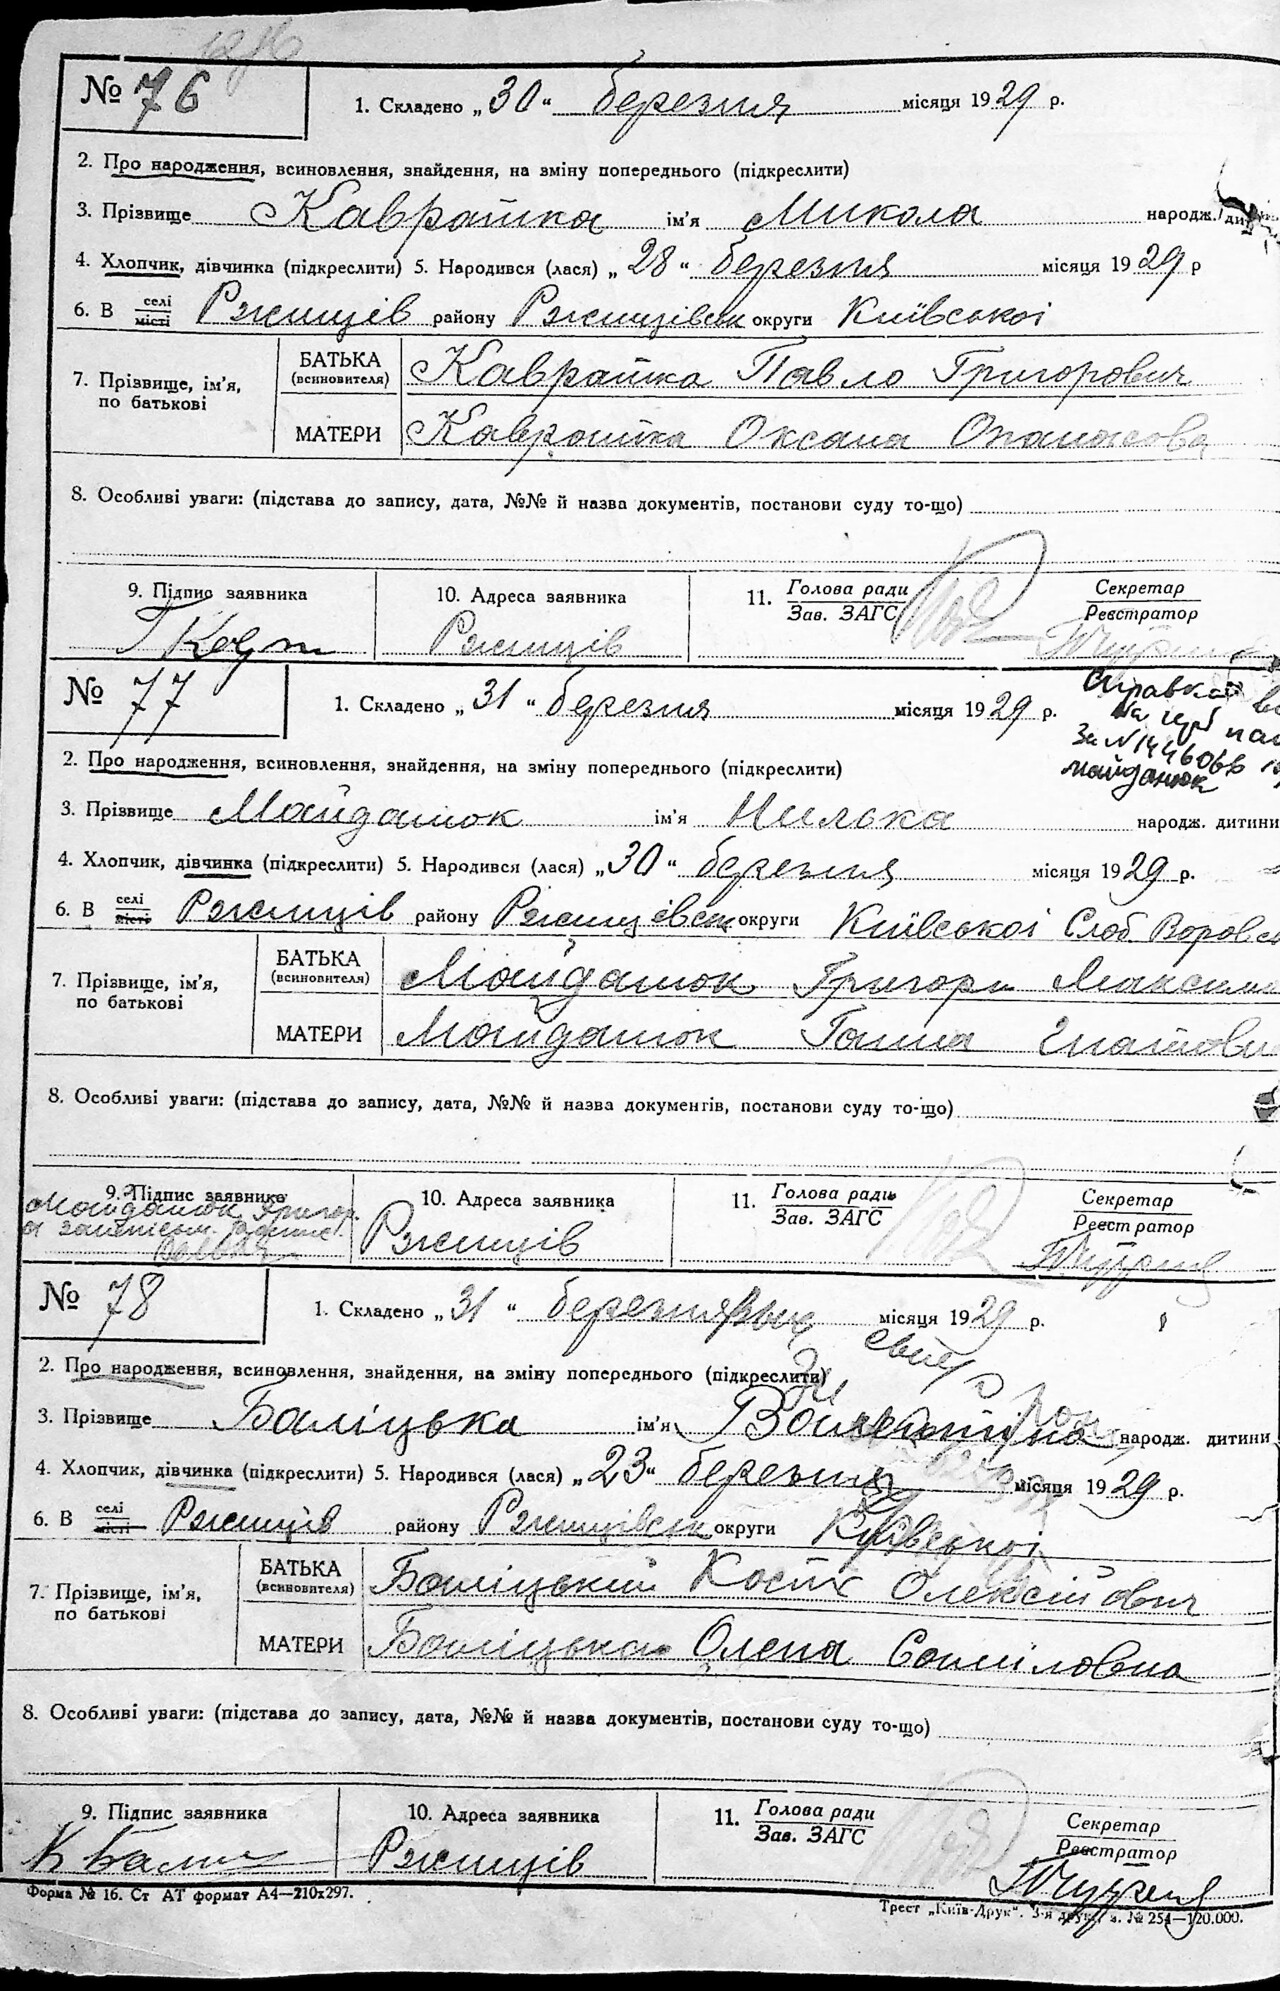 № 76
1. Складено „30“ березня місяця 1929 р.
2. Про народження, всиновлення, знайдення, на зміну попереднього (підкреслити)
3. Прізвище Каврайка ім'я Микола народж.
4. Хлопчик, дівчинка (підкреслити) 5. Народився (лася) „28“ березня місяця 1929 р
6. В селі місті Ржищів району Ржищівськ округи Київської
7. Прізвище, ім'я, по батькові
БАТЬКА (всиновителя) Каврайка Павло Григорович
МАТЕРИ Каврайка Оксана Опанасовн
8. Особливі уваги: (підстава до запису, дата, №№ й назва документів, постанови суду то-що)
9. Підпис заявника 10. Адреса заявника 11. Голова ради Зав. ЗАГС Секретар Реєстратор
Ржищів
№ 77
1. Складено „31“ березня місяця 1929 р.
Справка
За №
Майданюк
2. Про народження, всиновлення, знайдення, на зміну попереднього (підкреслити)
3. Прізвище Майданюк ім'я Нилька народж. дитини
4. Хлопчик, дівчинка (підкреслити) 5. Народився (лася) „30“ березня місяця 1929 р.
6. В селі місті Ржищів району Ржищівськ округи Київської Слоб
7. Прізвище, ім'я, по батькові
БАТЬКА (всиновителя) Майданюк Григори Максимо
МАТЕРИ Майданюк Ганна Гнатовн
8. Особливі уваги: (підстава до запису, дата, №№ й назва документів, постанови суду то-що)
9. Підпис заявника 10. Адреса заявника 11. Голова ради Зав. ЗАГС Секретар Реєстратор
Майданюк Григор.
Ржищів
№ 78
1. Складено „31“ березня місяця 1929 р.
2. Про народження, всиновлення, знайдення, на зміну попереднього (підкреслити)
3. Прізвище Баліцька ім'я Валентина народж. дитини
4. Хлопчик, дівчинка (підкреслити) 5. Народився (лася) „23“ березня місяця 1929 р.
6. В селі місті Ржищів району Ржищівськ округи Київської
7. Прізвище, ім'я, по батькові
БАТЬКА (всиновителя) Баліцький Костх Олексійович
МАТЕРИ Баліцька Олена Самійловна
8. Особливі уваги: (підстава до запису, дата, №№ й назва документів, постанови суду то-що)
9. Підпис заявника 10. Адреса заявника 11. Голова ради Зав. ЗАГС Секретар Реєстратор
Ржищів
Форма № 16. Ст АТ формат А4—210х297.
Трест „Київ-Друк“. 3-я друк. № 254—120.000.